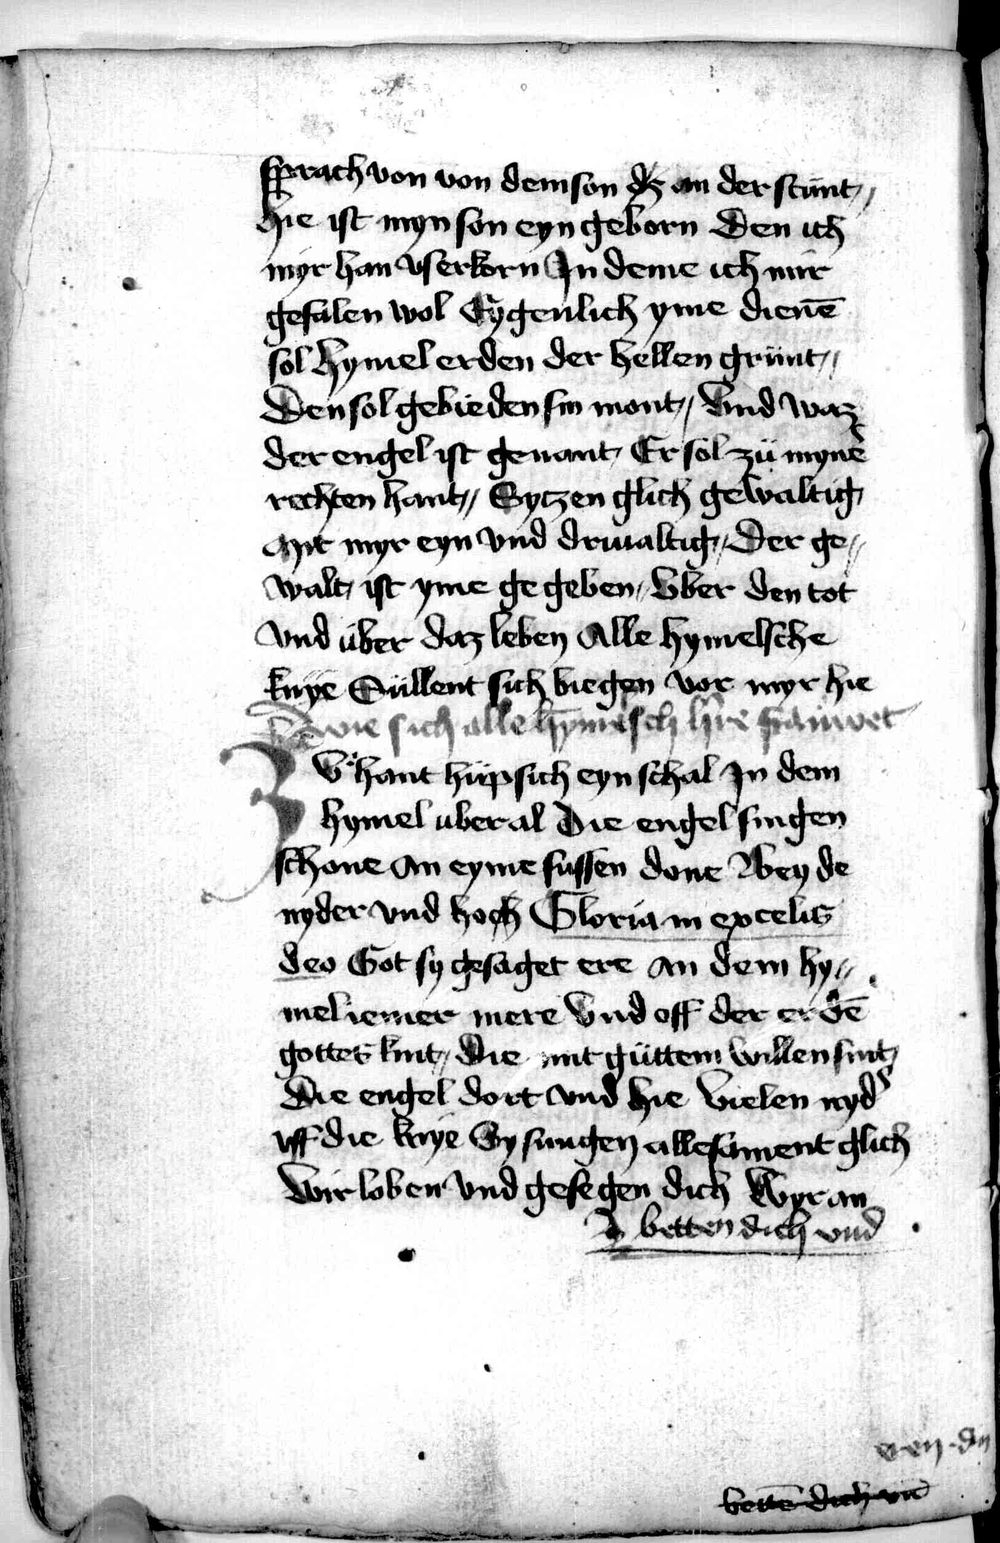 sprach von von dem son dz an der stunt //
hie ist myn son eyn geborn Den ich
myr han vserkorn In deme ich mir
gefalen wol Eygenlich yme dienē
sol hymel erden der hellen grunt //
Den sol gebieden sin mont // Vnd waz
der engel ist genant / Er sol zü mynē
rechten hant // Sytzen glich gewaltig
Mit myr eyn vnd drivaltig // Der ge //
walt / ist yme ge geben // Vber den tot
vnd über daz leben Alle hymelsche
knye Süllent sich biegen vor myr hie
wie sich alle hymelsch
Zv hant hüp sich eyn schal In dem
hymel uberal Die engel singen
schone An eyme sussen done Beyde
nyder vnd hoch Gloria in excelis
deo Got sy gesaget ere An dem hy //
mel iemer mere Vnd off der erdē
gottes kint // Die mit güttem willen sint /
Die engel dort vnd hie Vielen nyd
vff die knye Sy sungen allesament glich
Wir loben vnd gesegen dich Wyr an
betten dich vnd
bettē dich vn̄